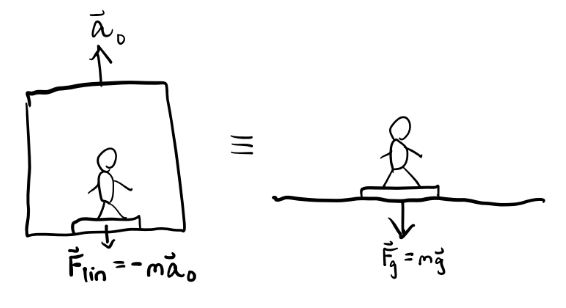 a⃗₀
≡
F⃗lin = -ma⃗₀
F⃗g = mg⃗